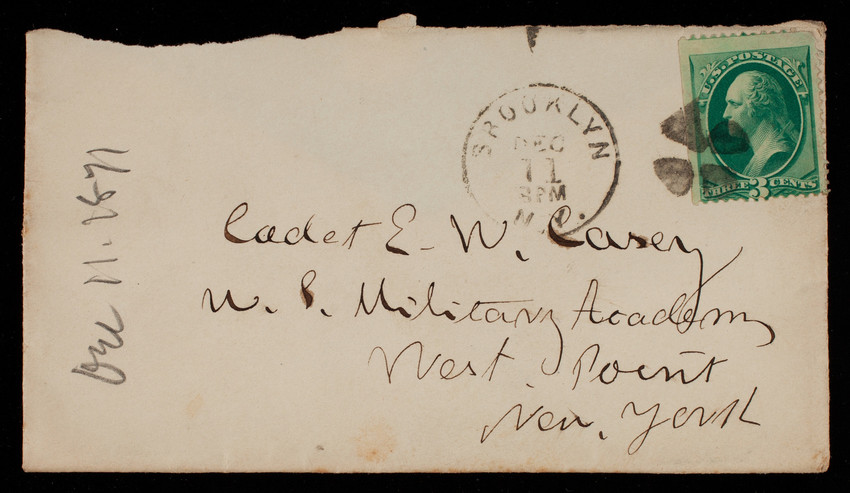 U.S. POSTAGE
THREE 3 CENTS
BROOKLYN
DEC
11
3PM
N.Y.
Cadet E. W. Casey
U. S. Military Academy
West Point
New York
Dec 11. 1871